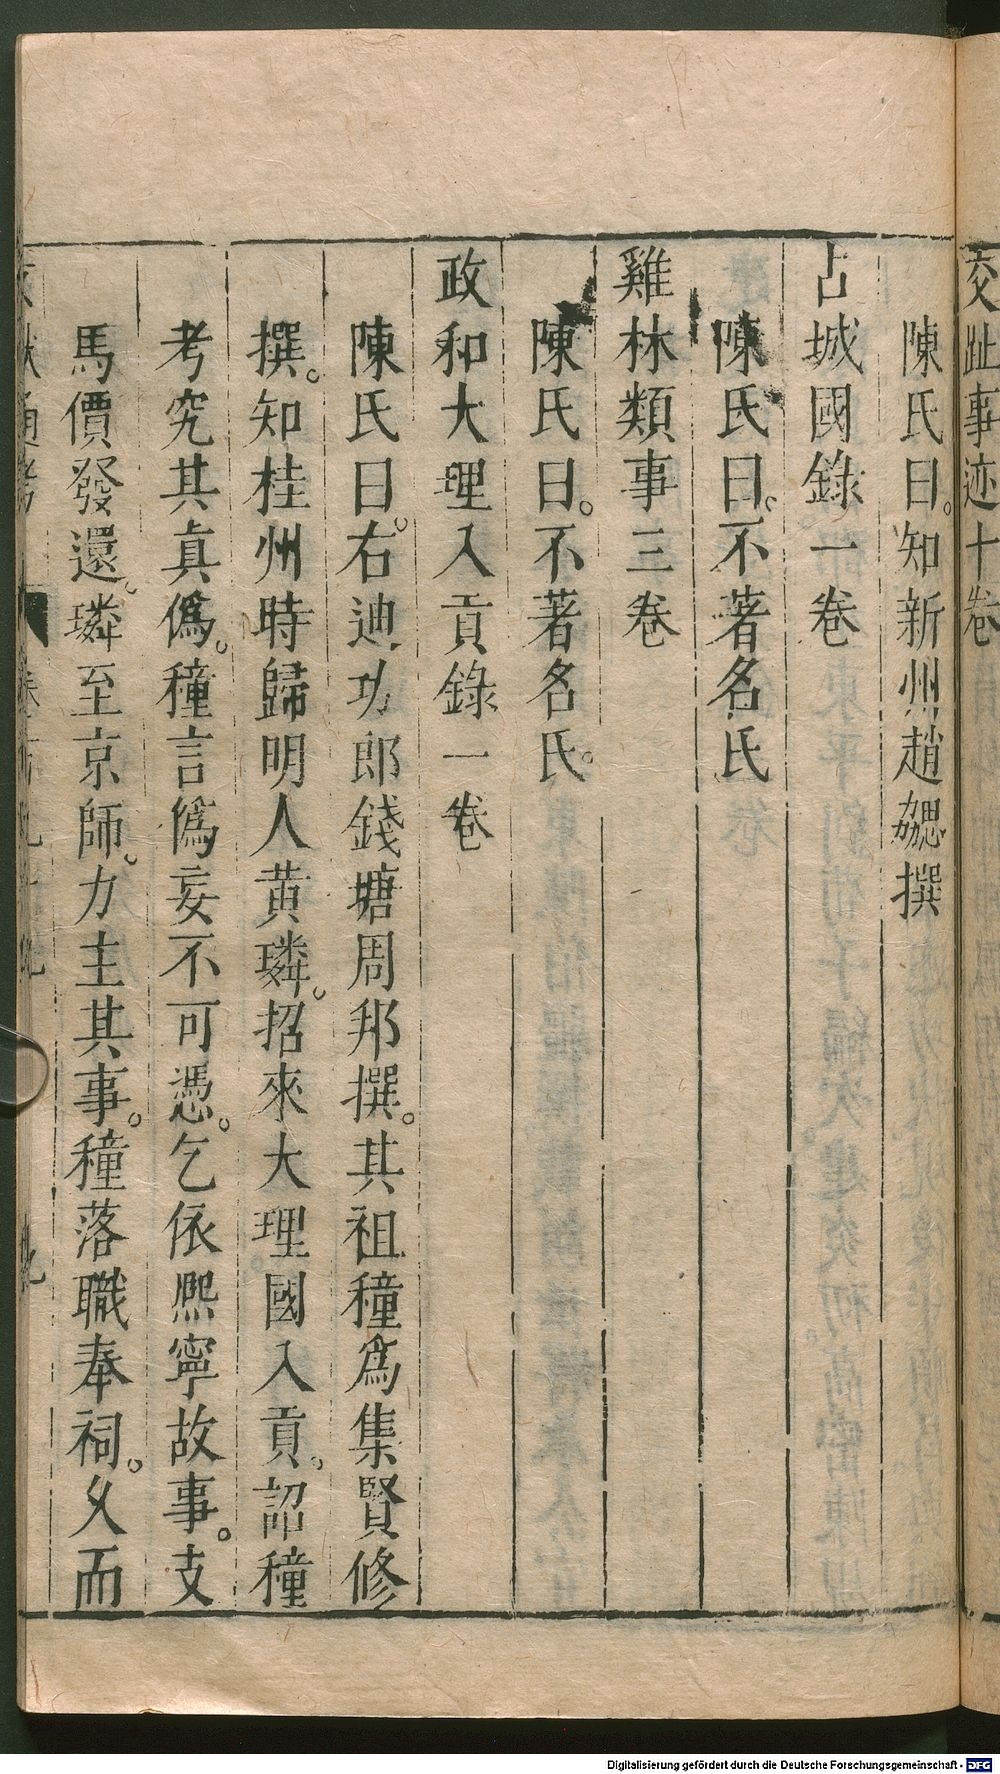 交趾事迹十卷
陳氏曰。知新州趙勰撰
占城國錄一卷
陳氏曰。不著名氏
雞林類事三卷
陳氏曰。不著名氏。
政和大理入貢錄一卷
陳氏曰。右迪功郎錢塘周邦撰。其祖穜爲集賢修
撰。知桂州時歸明人黃璘。招來大理國入貢。詔穜
考究其真僞。穜言僞妄不可憑。乞依熈寧故事。支
馬價發還。璘至京師。力主其事。穜落職奉祠。乆而
Digitalisierung gefördert durch die Deutsche Forschungsgemeinschaft - DFG